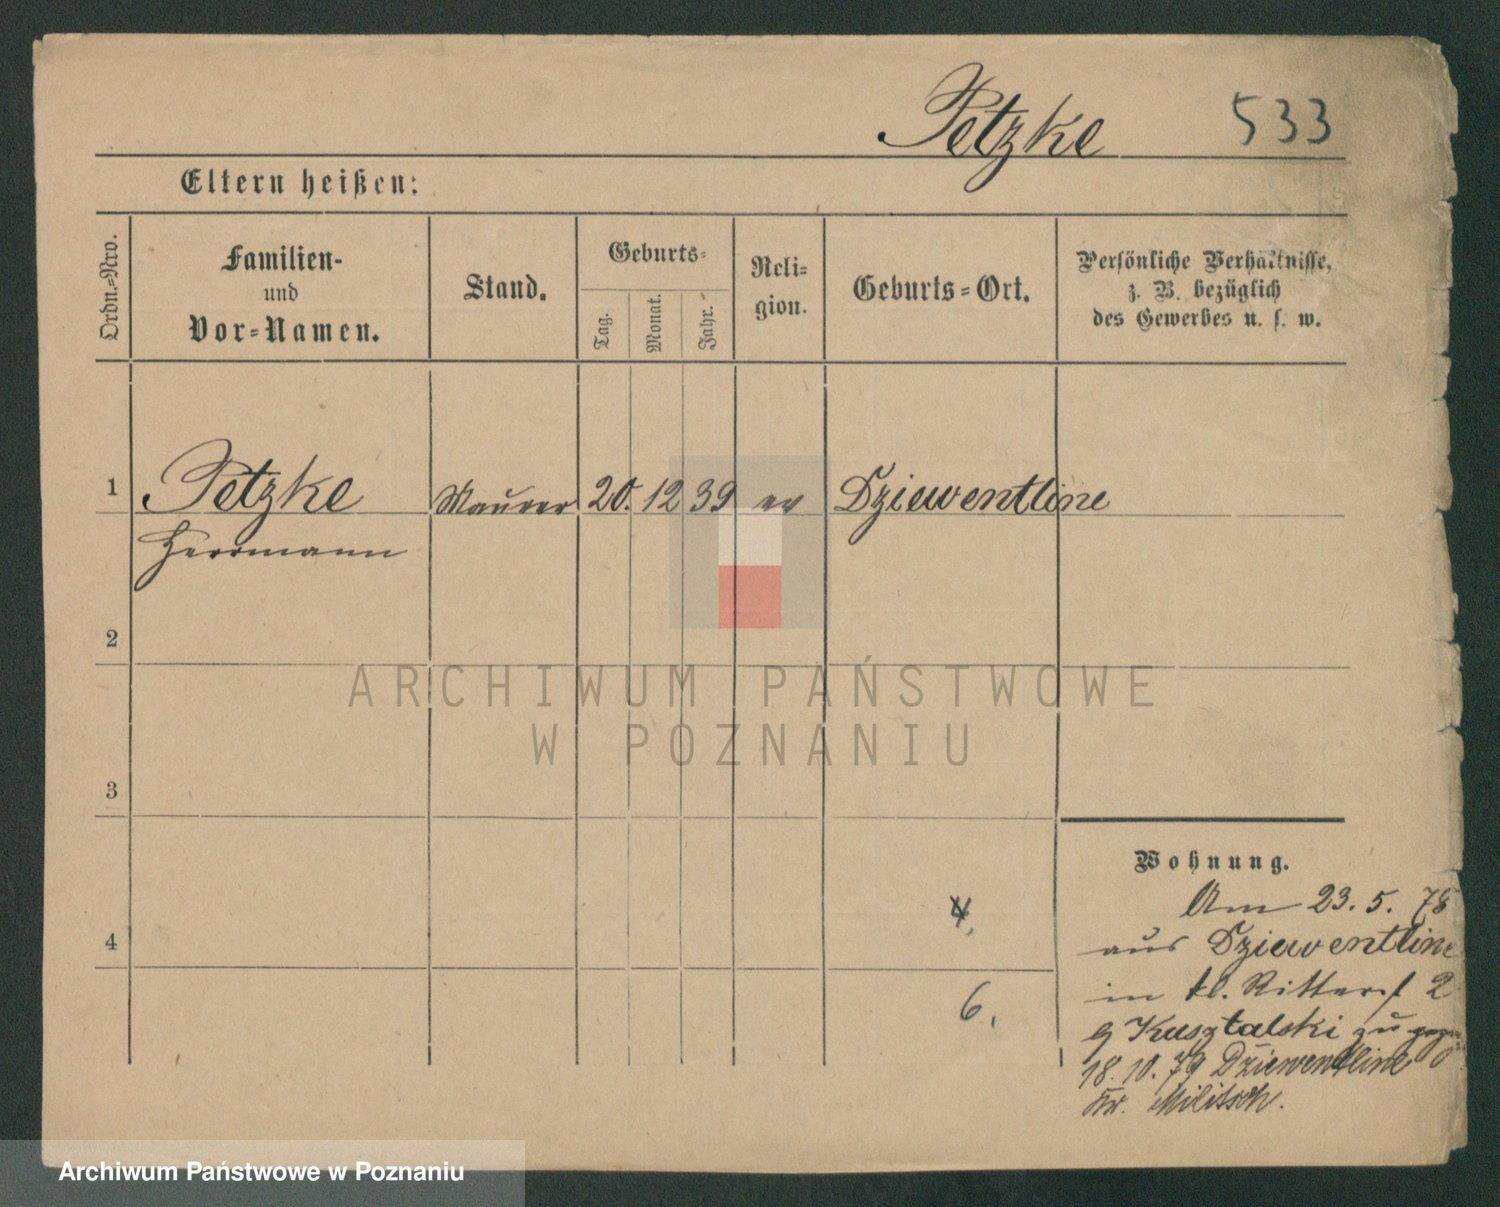 Petzke 533
Eltern heißen:
Ordn.-Nro.
Familien-
und
Vor-Namen.
Stand.
Geburts-
Tag.
Monat.
Jahr.
Reli-
gion.
Geburts-Ort.
Persönliche Verhältnisse,
z. B. bezüglich
des Gewerbes u. s. w.
1 Petzke Maurer 20. 12 39 ev Dziewentline
Herrmann
2
3
4
4,
6,
Wohnung.
Am 23. 5. 78
aus Dziewentline
in kl. Ritterst 2
Kusztalski zu
18. 10. 79 Dziewentline
Kr. Militsch.
ARCHIWUM PAŃSTWOWE
W POZNANIU
Archiwum Państwowe w Poznaniu